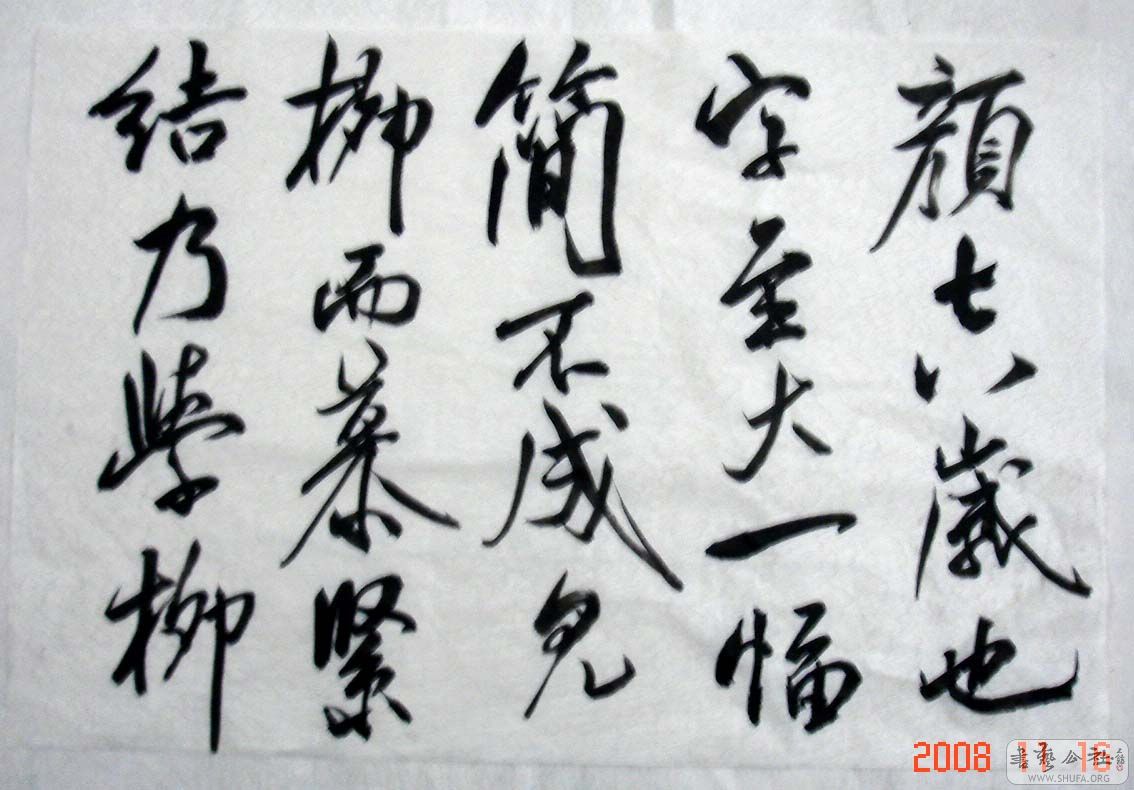 顔七八歲也
字至大一幅
簡不成見
柳而慕緊
結乃學柳
2008 11 16
書藝公社
WWW.SHUFA.ORG